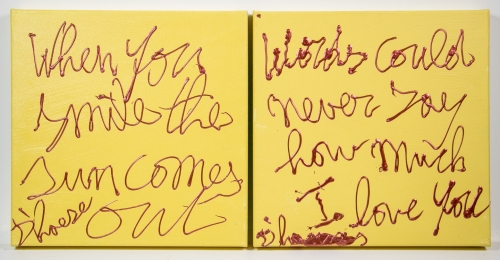 When You
smile the
sun comes
out
Words could
never say
how much
I love you